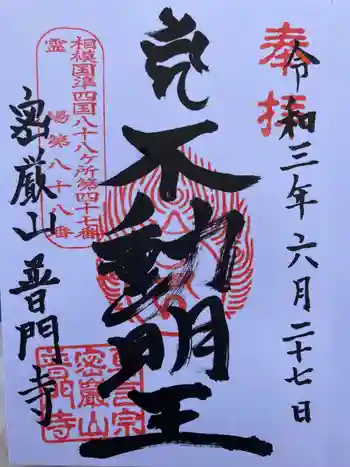 奉拝
令和三年六月二十七日
不動明王
相模国準四国八十八ヶ所第四十七番
霊場第八十八番
密厳山 普門寺
真言宗
密嚴山
普門寺